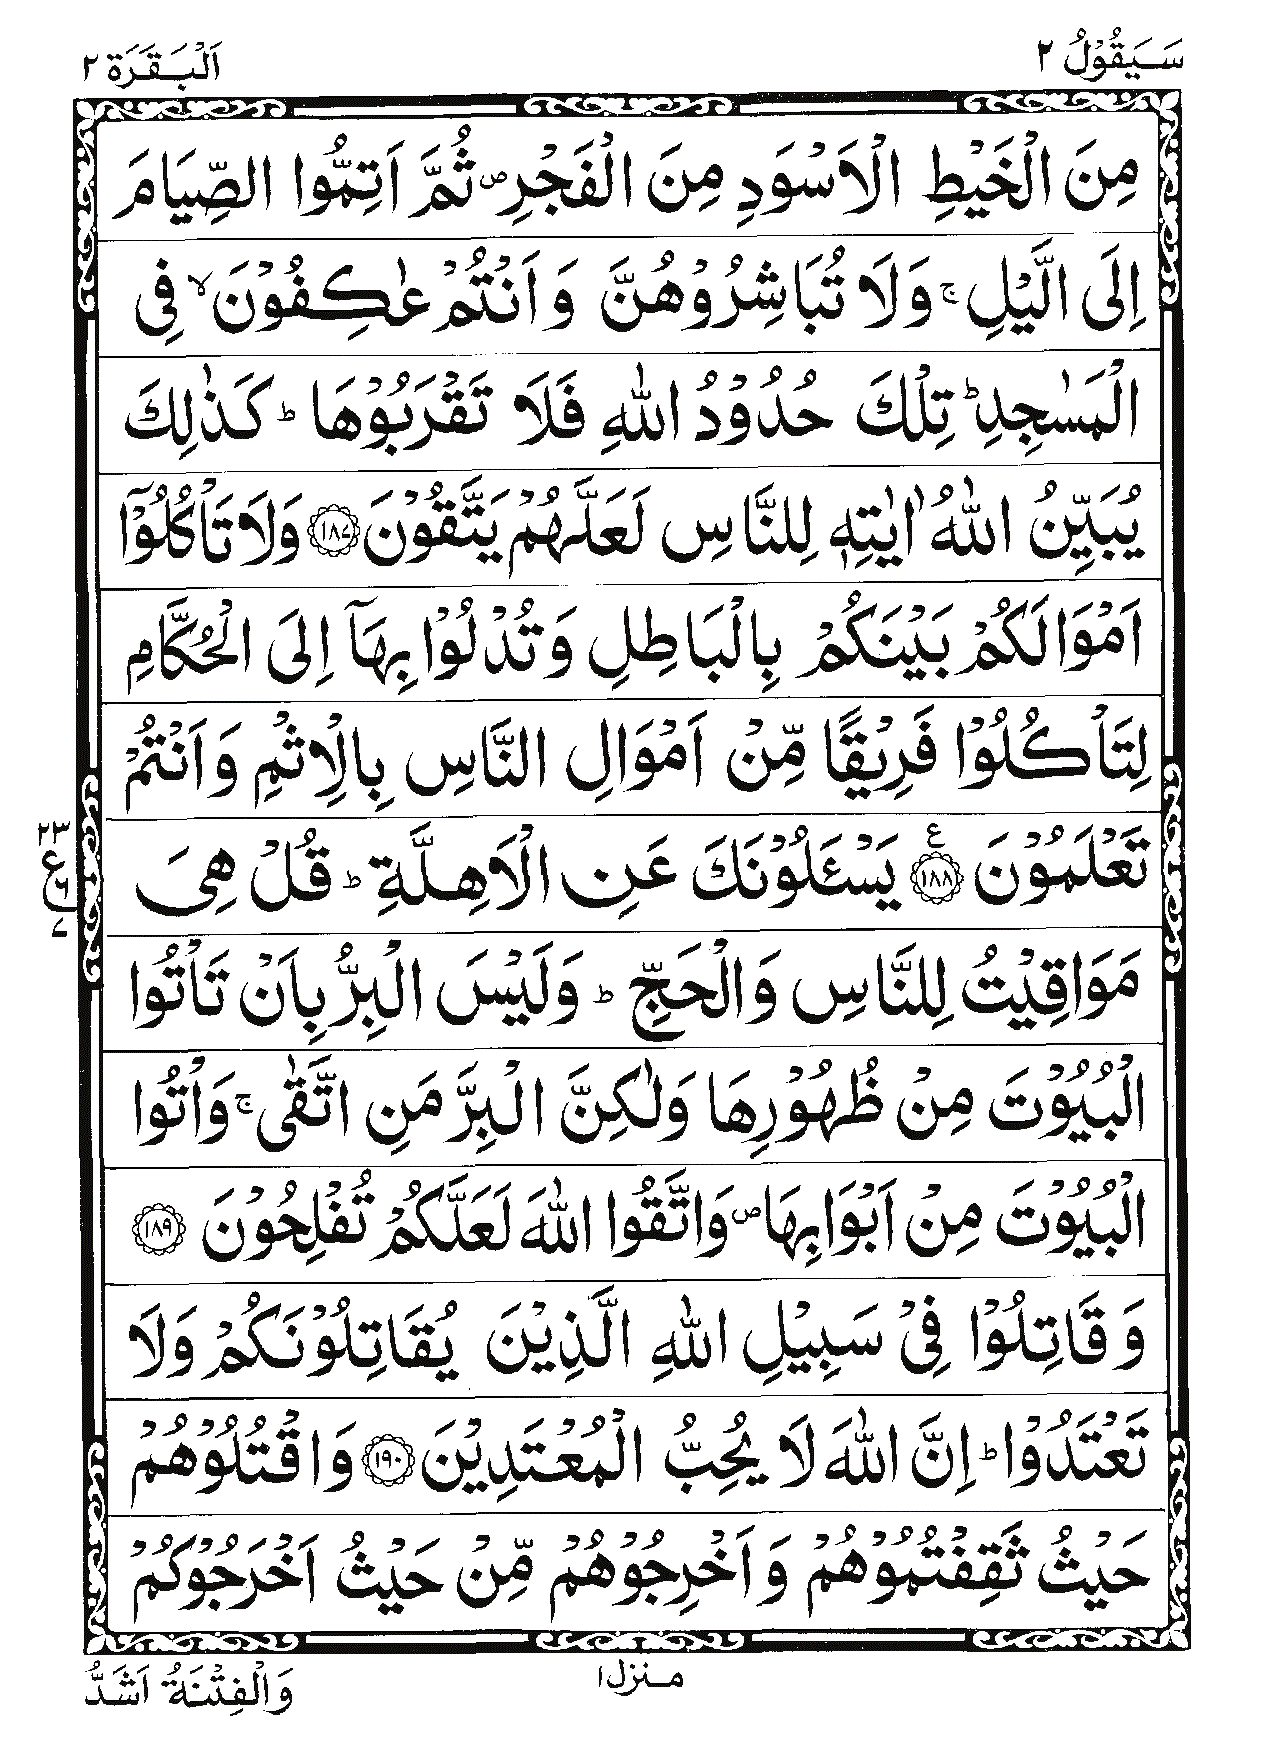 سَيَقُوْلُ ٢
اَلْبَقَرَة ٢
مِنَ الْخَيْطِ الْاَسْوَدِ مِنَ الْفَجْرِ ص ثُمَّ اَتِمُّوا الصِّيَامَ
اِلَى الَّيْلِ ج وَلَا تُبَاشِرُوْهُنَّ وَاَنْتُمْ عٰكِفُوْنَ لا فِى
الْمَسٰجِدِ ط تِلْكَ حُدُوْدُ اللّٰهِ فَلَا تَقْرَبُوْهَا ط كَذٰلِكَ
يُبَيِّنُ اللّٰهُ اٰيٰتِهٖ لِلنَّاسِ لَعَلَّهُمْ يَتَّقُوْنَ ١٨٧ وَلَا تَاْكُلُوْٓا
اَمْوَالَكُمْ بَيْنَكُمْ بِالْبَاطِلِ وَتُدْلُوْا بِهَآ اِلَى الْحُكَّامِ
لِتَاْكُلُوْا فَرِيْقًا مِّنْ اَمْوَالِ النَّاسِ بِالْاِثْمِ وَاَنْتُمْ
تَعْلَمُوْنَ ١٨٨ ع يَسْـَٔلُوْنَكَ عَنِ الْاَهِلَّةِ ط قُلْ هِىَ
٢٣
ع ٦
٧
مَوَاقِيْتُ لِلنَّاسِ وَالْحَجِّ ط وَلَيْسَ الْبِرُّ بِاَنْ تَاْتُوا
الْبُيُوْتَ مِنْ ظُهُوْرِهَا وَلٰكِنَّ الْبِرَّ مَنِ اتَّقٰى ج وَاْتُوا
الْبُيُوْتَ مِنْ اَبْوَابِهَا ص وَاتَّقُوا اللّٰهَ لَعَلَّكُمْ تُفْلِحُوْنَ ١٨٩
وَقَاتِلُوْا فِىْ سَبِيْلِ اللّٰهِ الَّذِيْنَ يُقَاتِلُوْنَكُمْ وَلَا
تَعْتَدُوْا ط اِنَّ اللّٰهَ لَا يُحِبُّ الْمُعْتَدِيْنَ ١٩٠ وَاقْتُلُوْهُمْ
حَيْثُ ثَقِفْتُمُوْهُمْ وَاَخْرِجُوْهُمْ مِّنْ حَيْثُ اَخْرَجُوْكُمْ
منزل ١
وَالْفِتْنَةُ اَشَدُّ